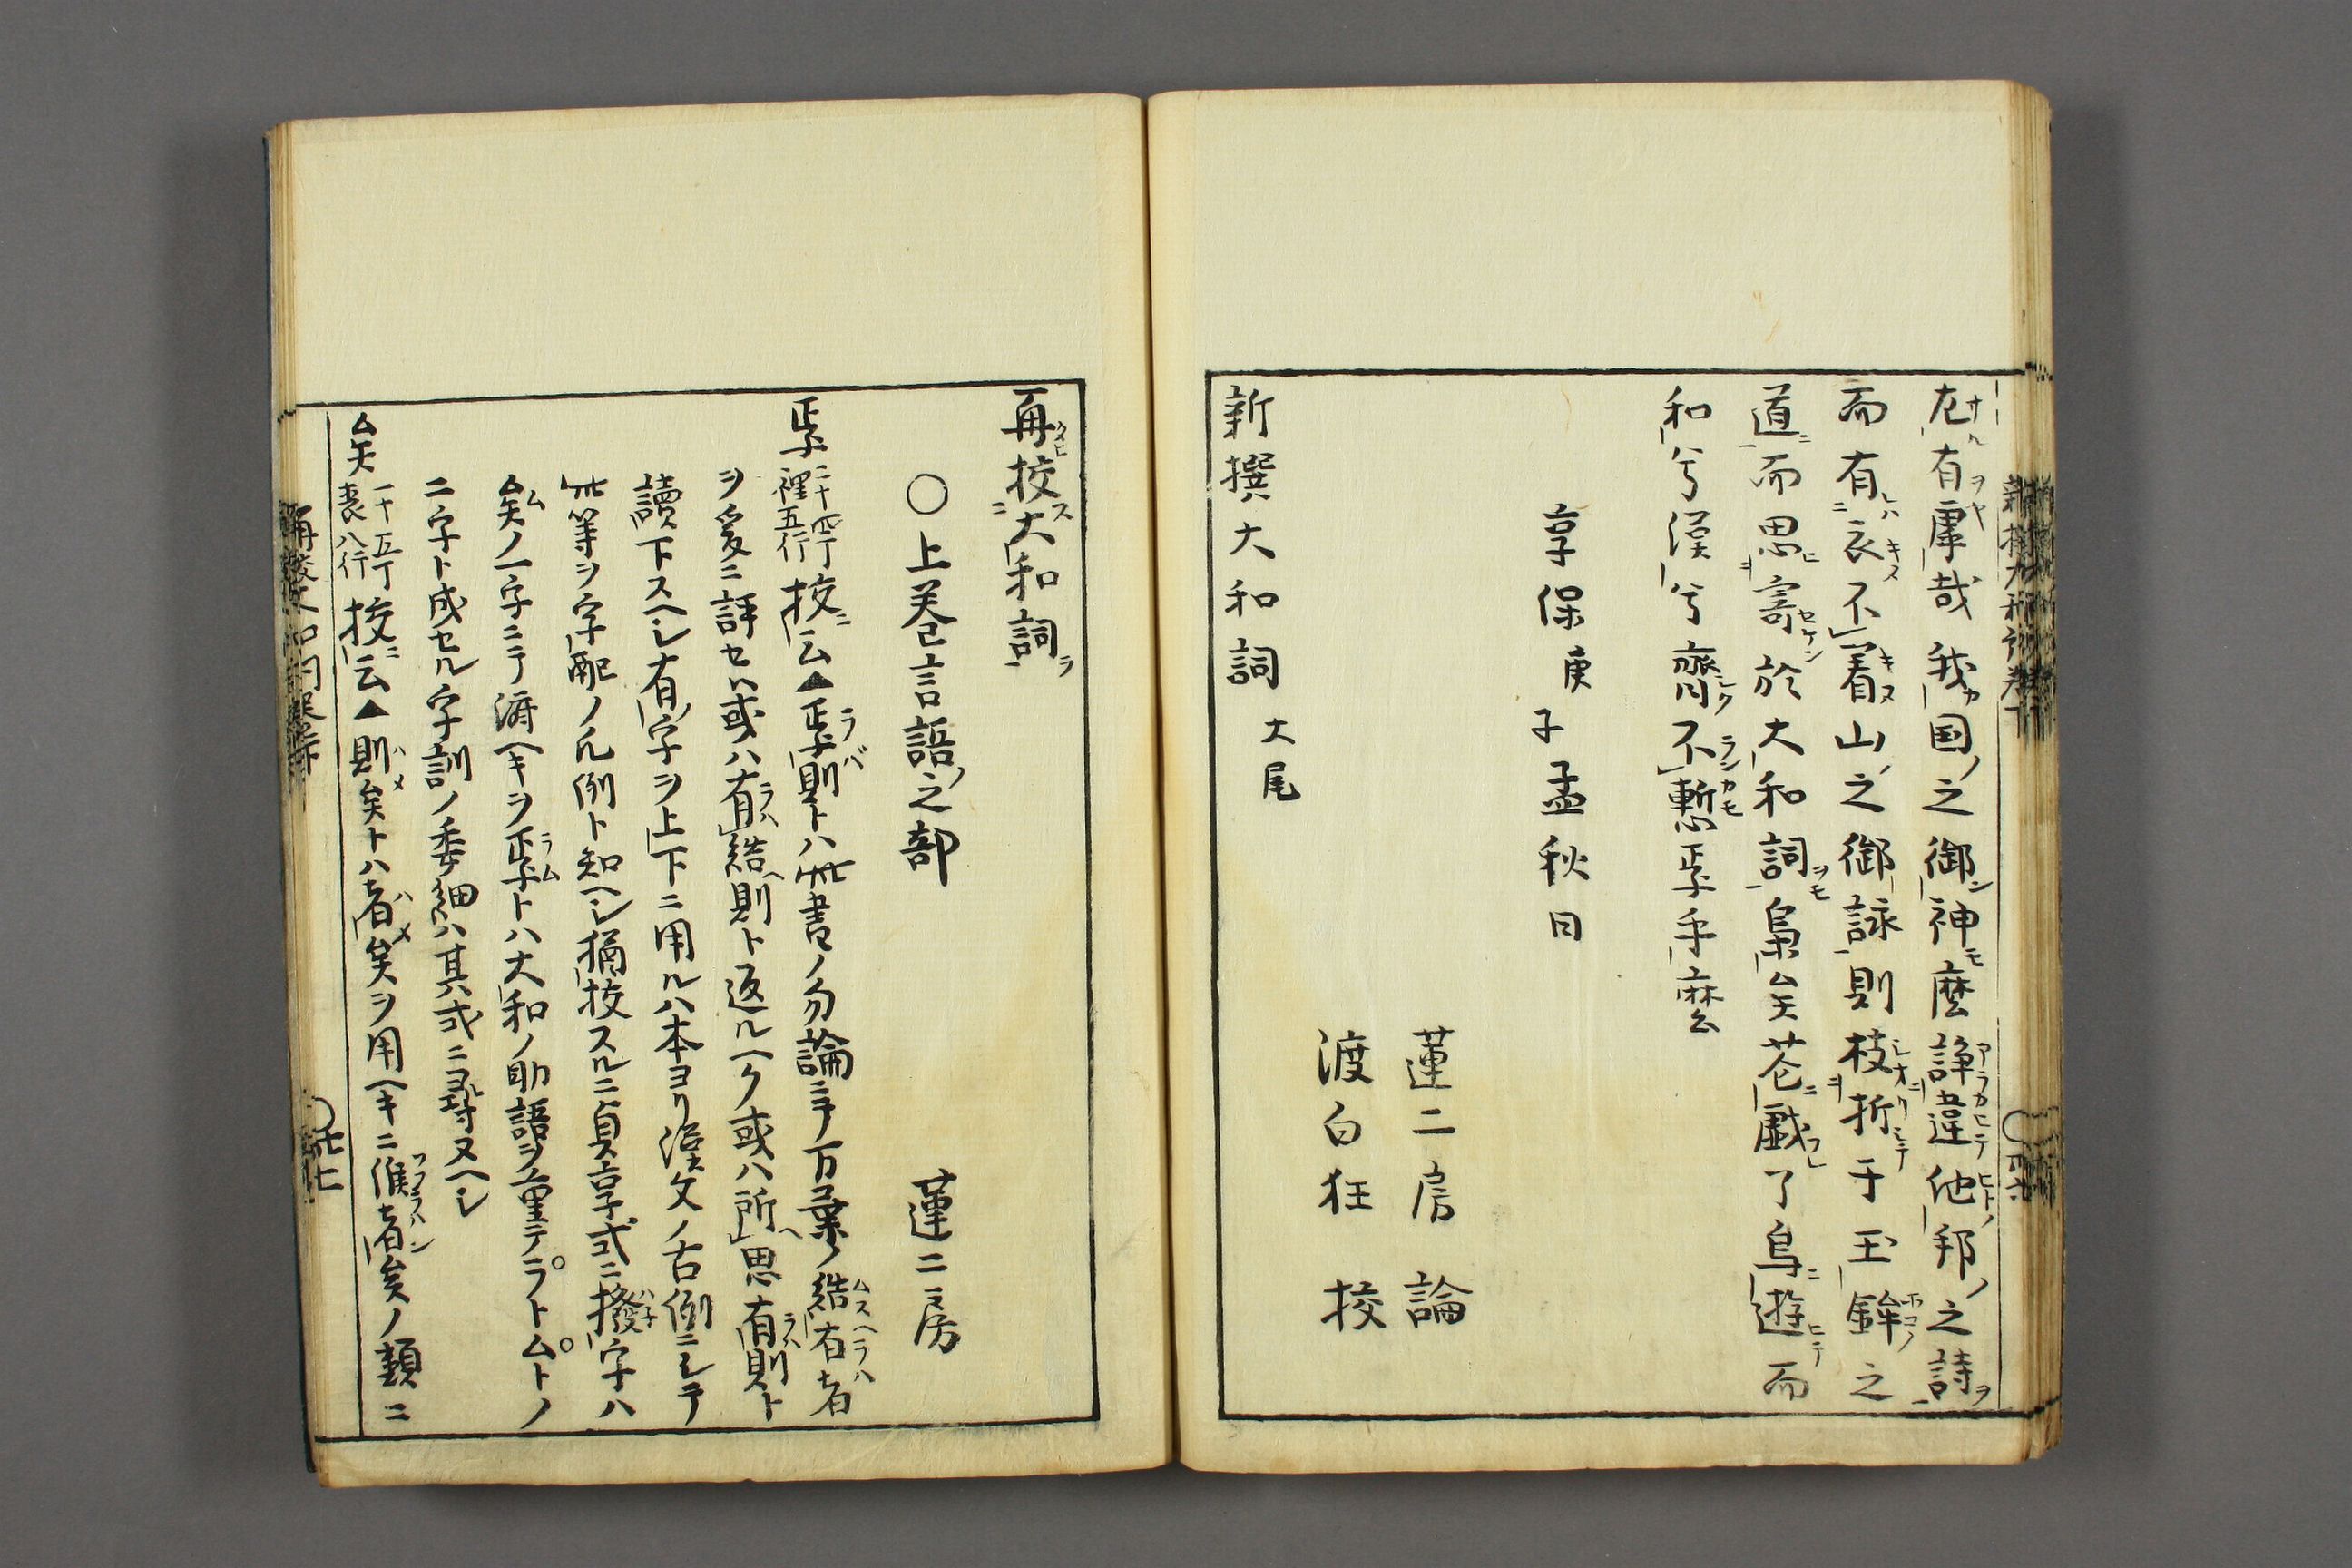 尨有庫哉我国ノ之御神麼諍違他邦ノ之詩ヲ
而有衣不着山之御詠則枝折于玉鉾之
道ニ而思寄於大和詞梟矣苍戯了鳥遊而
和兮漢兮齊不慙乎麼
享保庚子孟秋日
蓮二房論
渡白狂挍
新撰大和詞大尾
再挍大和詞
〇上巻言語ノ之部 蓮二房
二十四丁裡五行挍云▲則トハ此書ノ勿論ニテ万葉ノ結有者
ヲ爰ニ評セハ或ハ有結則ト返ルヘク或ハ所思有則ト
讀下スヘシ有字ヲ上下ニ用ルハ本ヨリ漢文ノ古例ニシテ
此等ヲ字配ノ凡例ト知ヘシ猶挍スルニ貞享式ニ撥字ハ
矣ノ一字ニテ済ヘキヲトハ大和ノ助語ヲ重テラトムトノ
二字ト成セル字訓ノ委細ハ其式ニ尋ヌヘシ
矣 一十五丁表八行挍云▲則矣トハ者矣ヲ用ヘキニ候者矣ノ類ニ